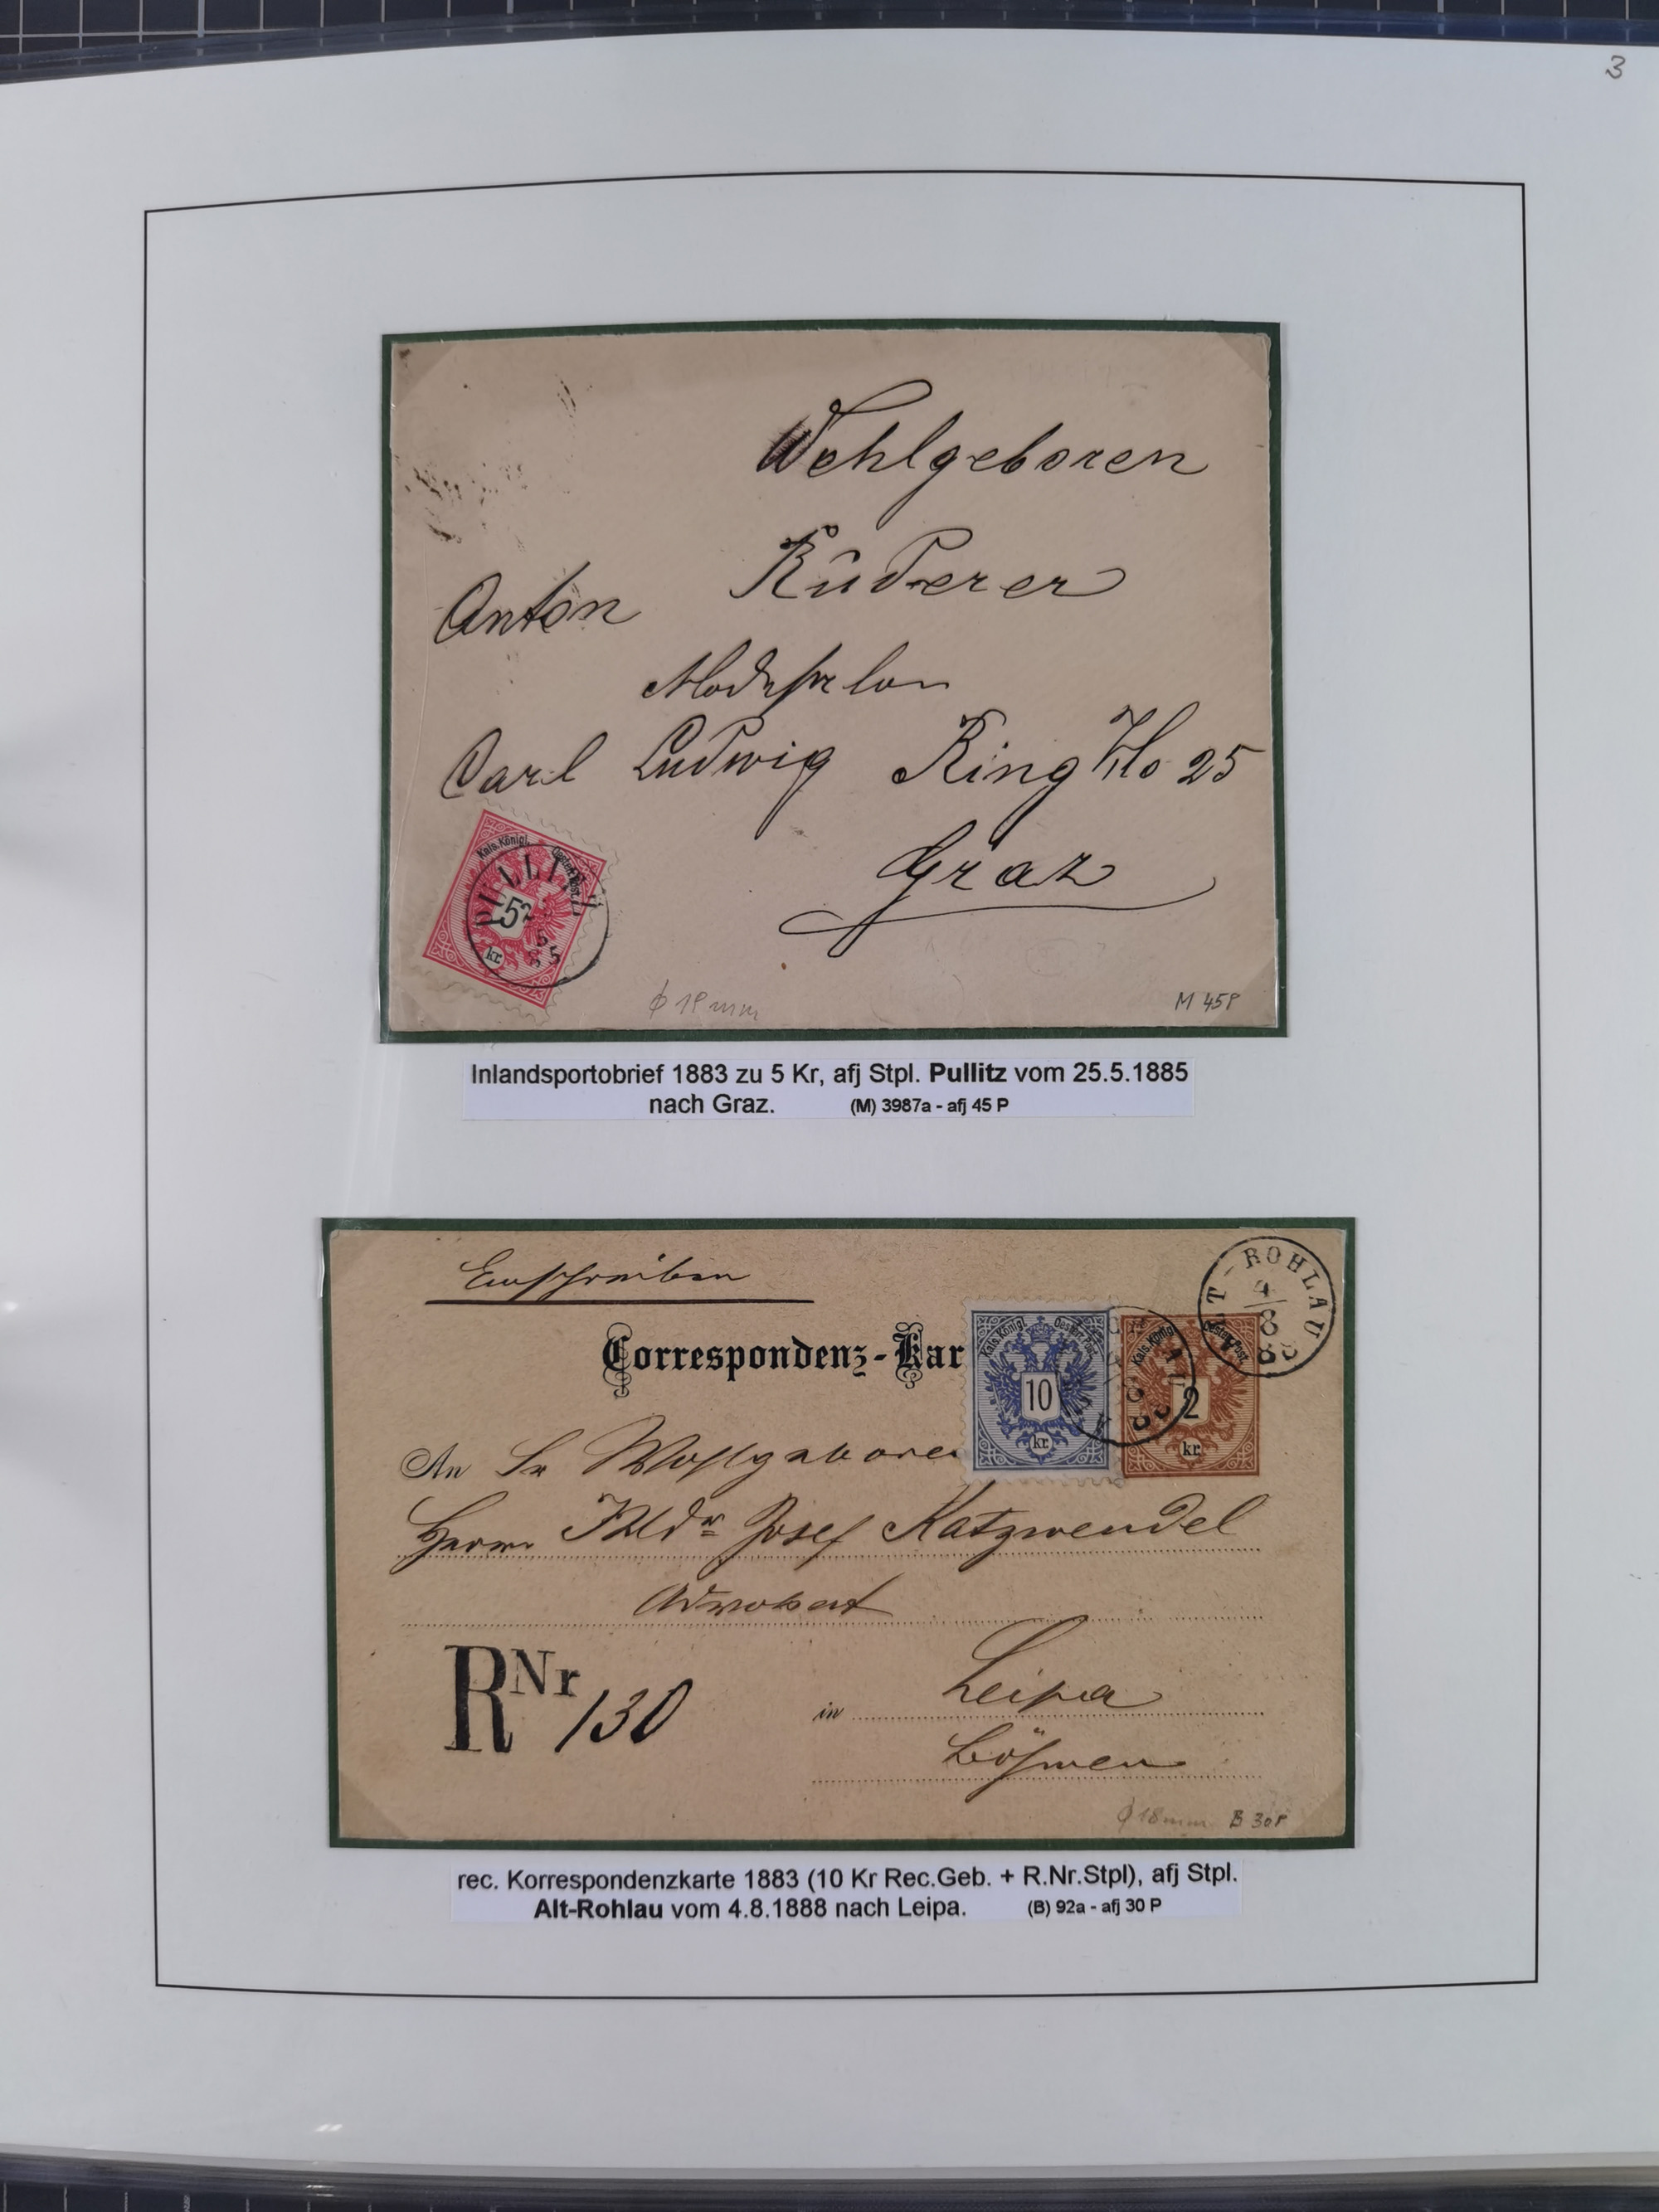 3
Wehlgeboren
Anton Ruderer
Modesalon
Carl Ludwig Ring No 25
Graz
Kais. Königl. Oesterr. Post.
5
kr.
PULLITZ
25
5
85
18 mm
M 45P
Inlandsportobrief 1883 zu 5 Kr, afj Stpl. Pullitz vom 25.5.1885
nach Graz. (M) 3987a - afj 45 P
Einschreiben
Correspondenz-Kar
Kais. Königl. Oesterr. Post.
10
kr.
Kais. Königl. Oesterr. Post.
2
kr.
ALT-ROHLAU
4/8
88
An Sr Wohlgeboren
Herrn JUDr Josef Katzwendel
Advokat
RNr 130
in Leipa
Böhmen
18 mm B 30P
rec. Korrespondenzkarte 1883 (10 Kr Rec.Geb. + R.Nr.Stpl), afj Stpl.
Alt-Rohlau vom 4.8.1888 nach Leipa. (B) 92a - afj 30 P